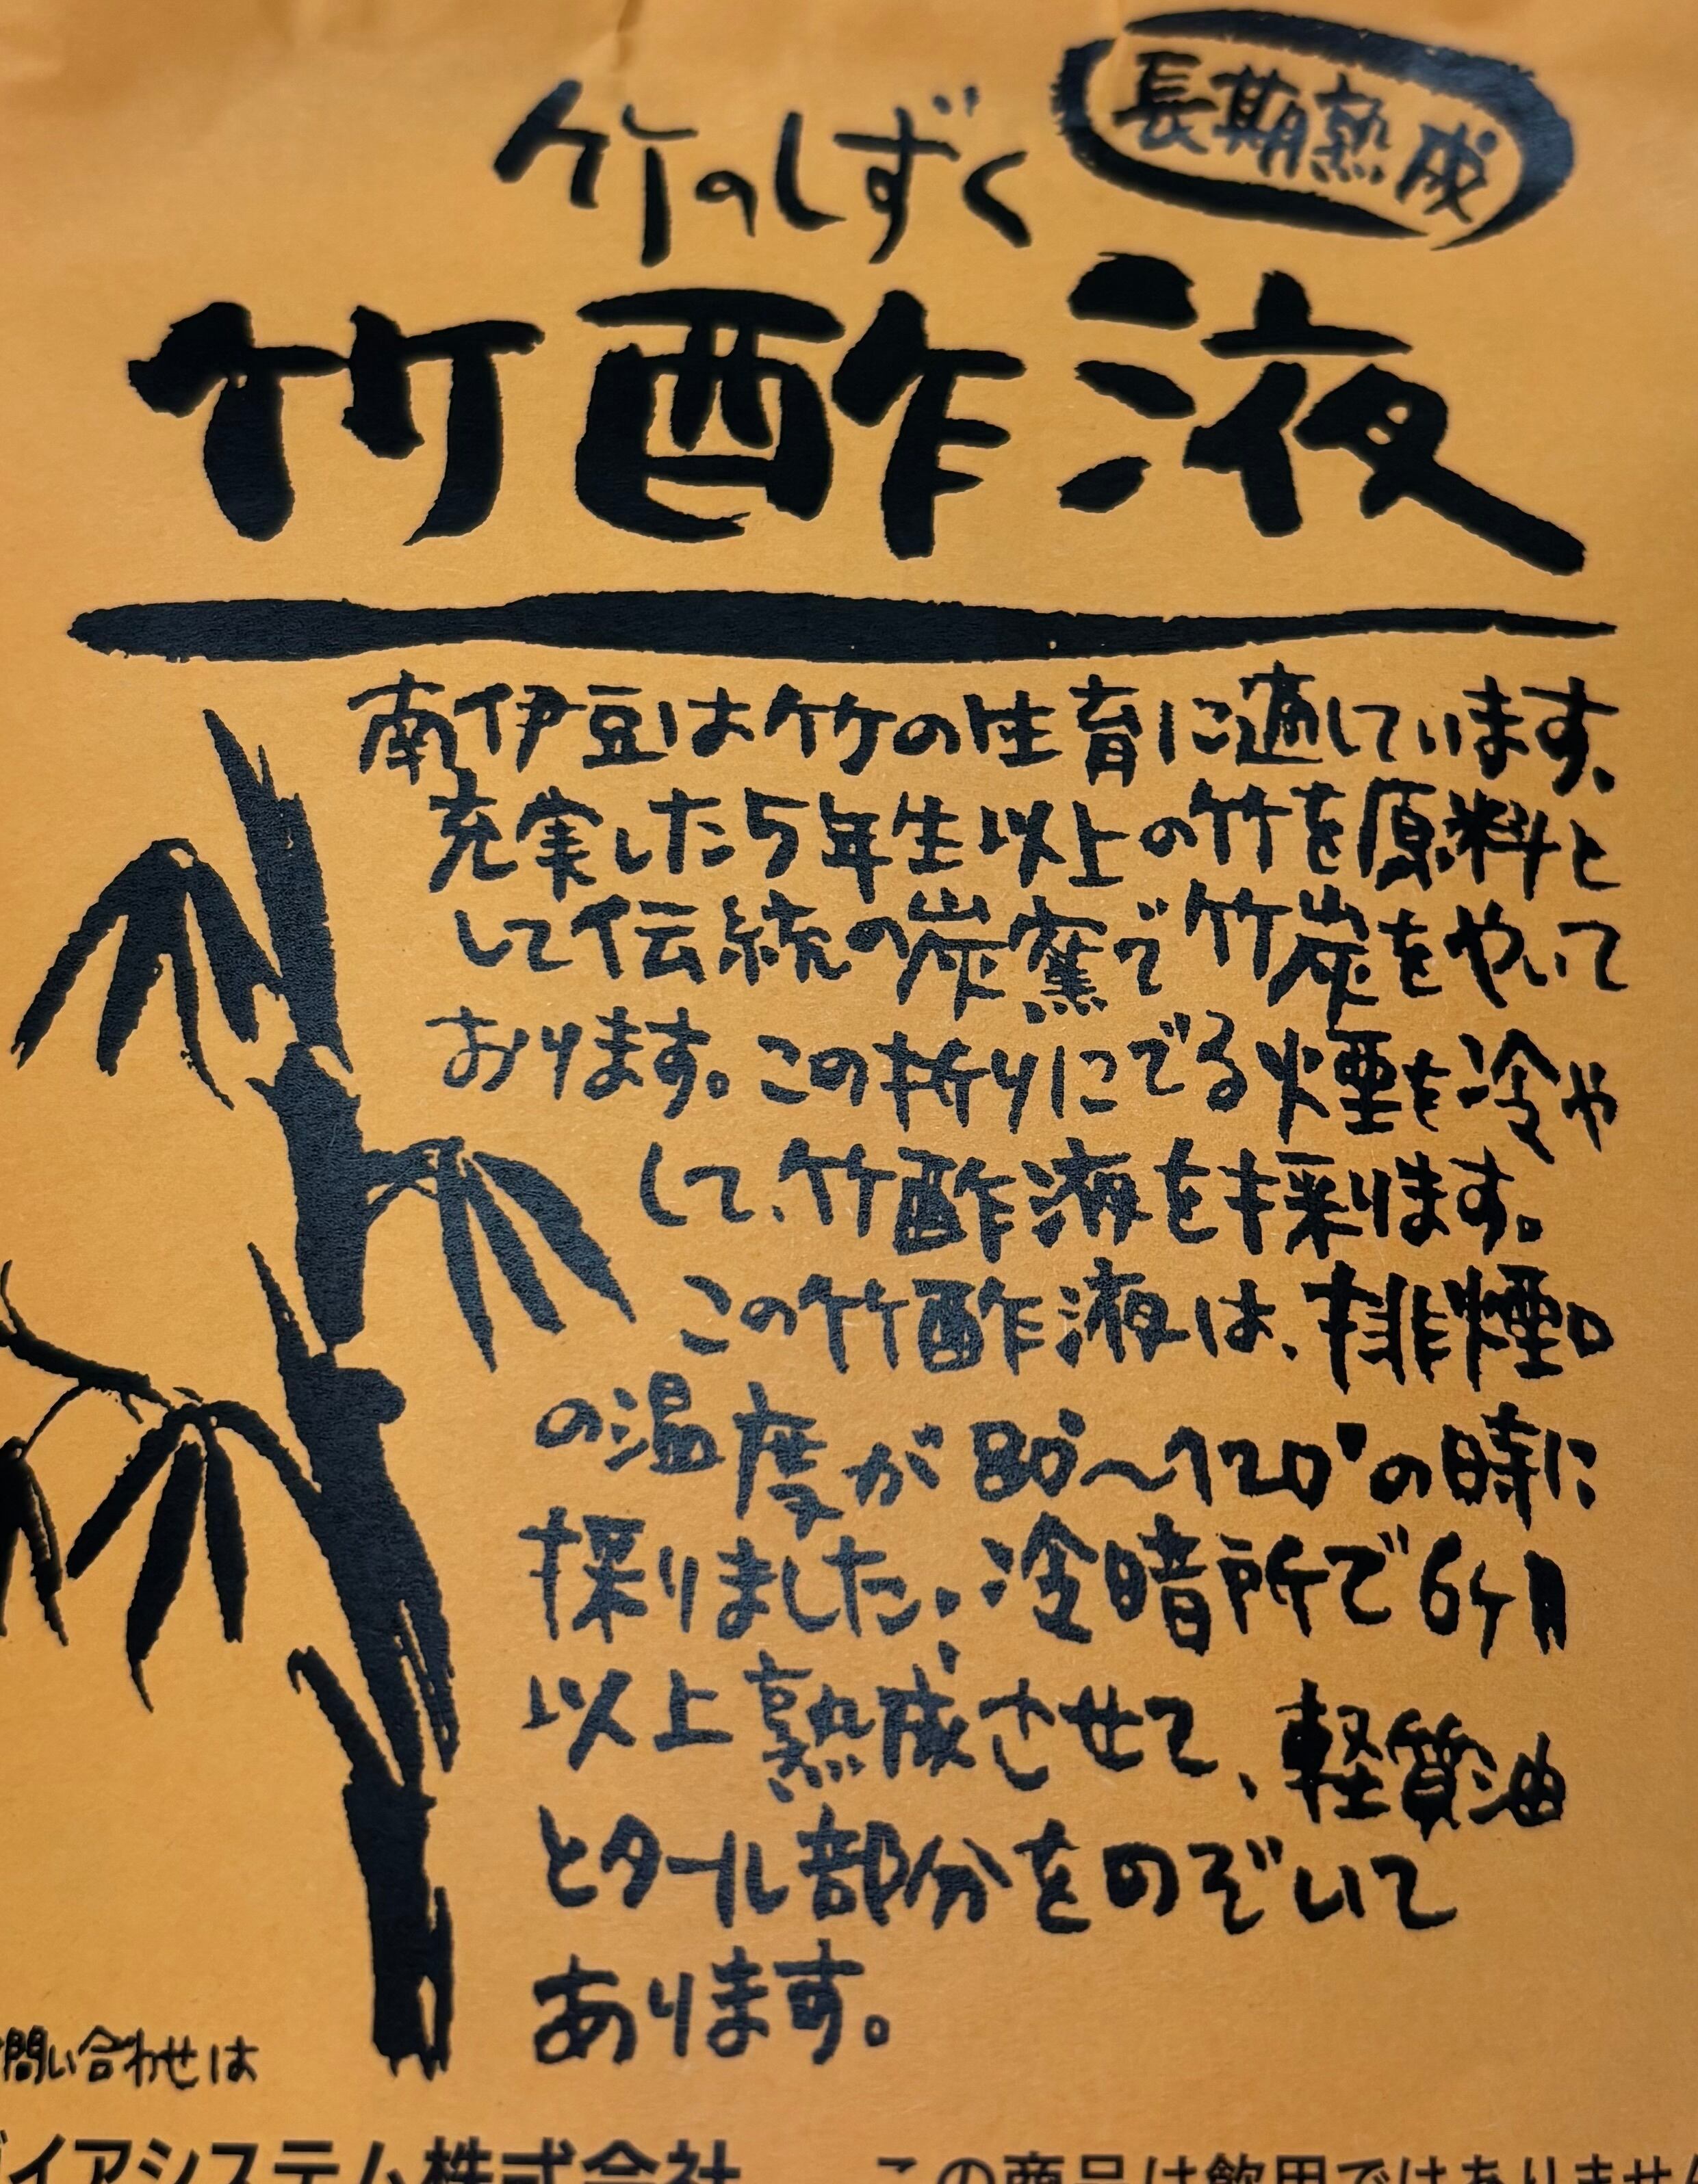 長期熟成
竹のしずく
竹酢液
南伊豆は竹の生育に適しています。
充実した5年生以上の竹を原料と
して伝統の炭窯で竹炭をやいて
おります。この折りにでる煙を冷や
して、竹酢液を採ります。
この竹酢液は、排煙口
の温度が80°〜120°の時に
採りました。冷暗所で6ヶ月
以上熟成させて、軽質油
とタール部分をのぞいて
あります。
問い合わせは
イアシステム株式会社
この商品は飲用ではありません